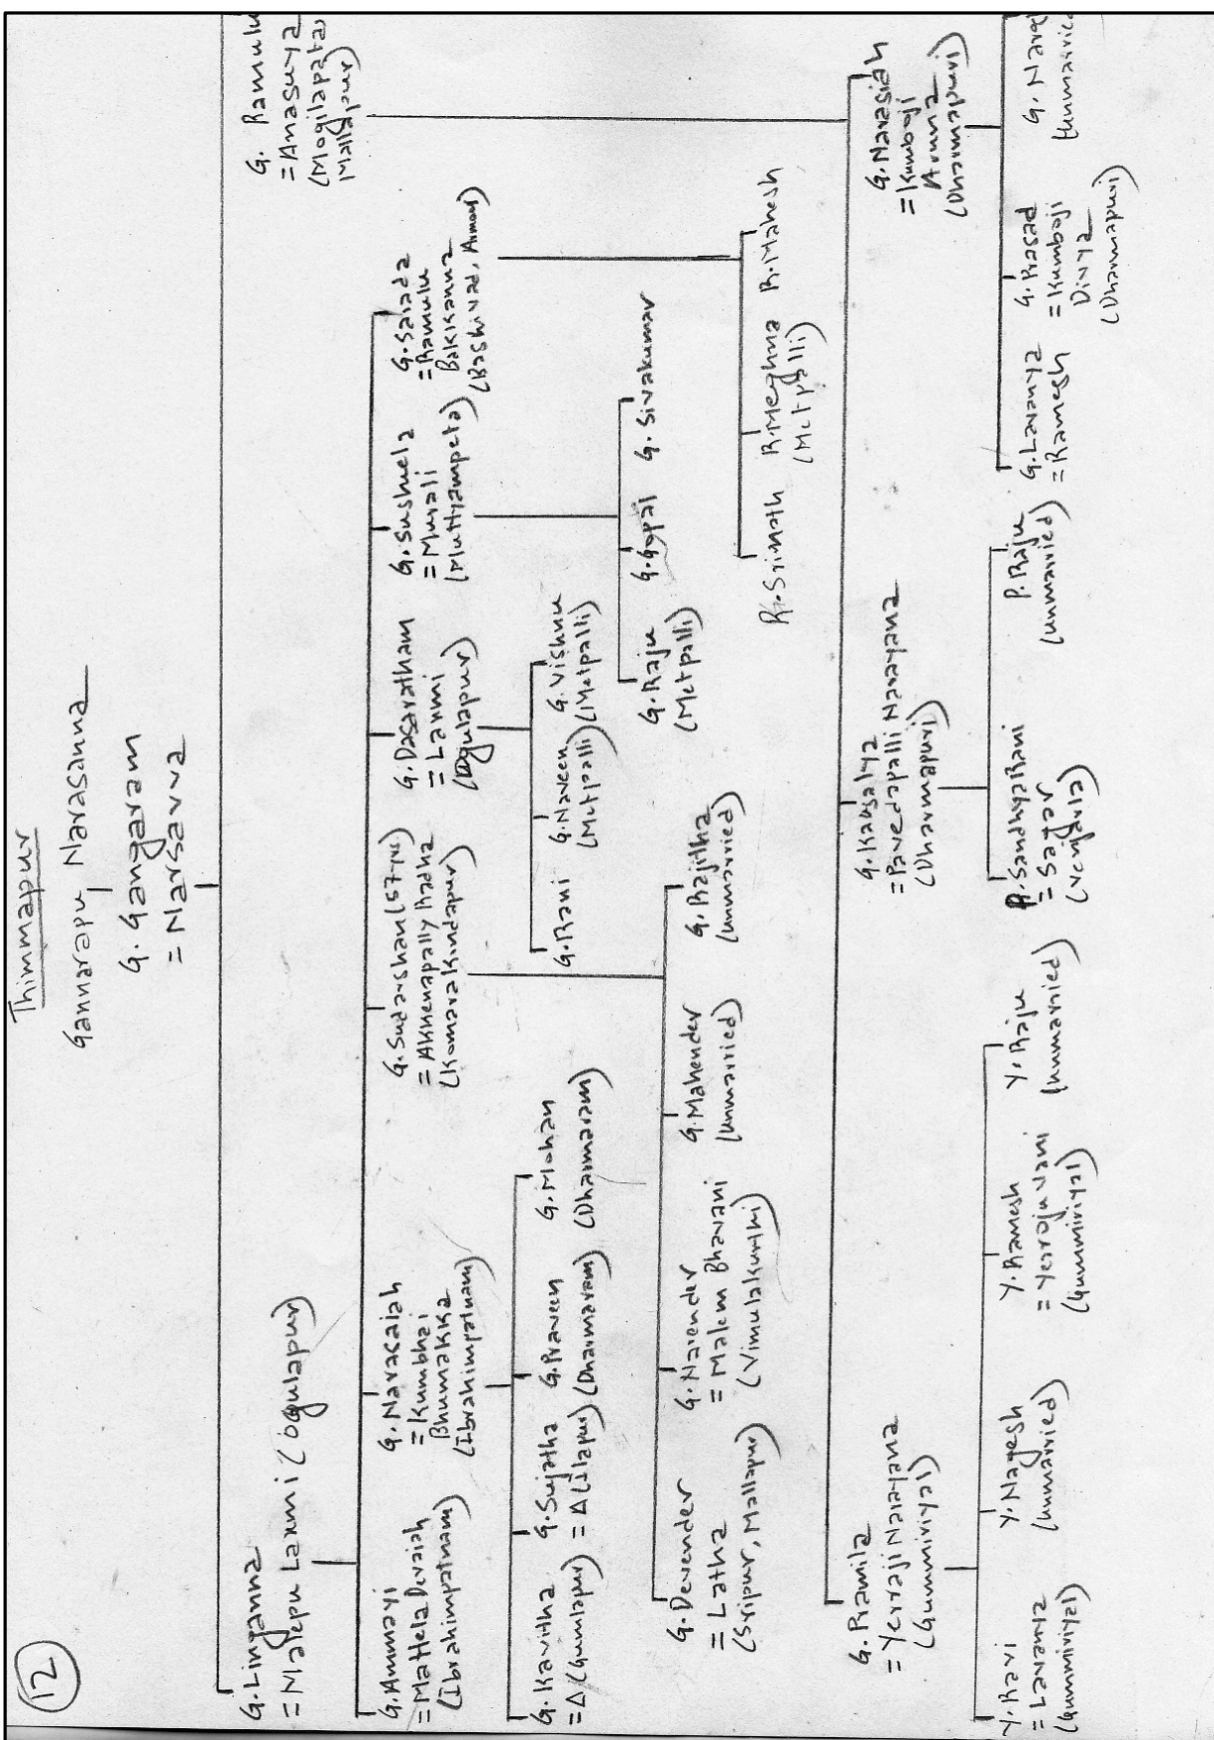 12
Thimmapur
Gannarapu Narasanna
G. Gangaram
= Narsavva
G. Linganna
= Malepu Laxmi (Ogulapur)
G. Ramulu
= Anasuya
(Mogilapata,
Mallapur)
G. Ammayi
= Mattela Devaiah
(Ibrahimpatnam)
G. Narasaiah
= Kumbhai
Bhumakka
(Ibrahimpatnam)
G. Sudarshan (57 yrs)
= Akkenapally Radha
(Komarakindapur)
G. Dasaratham
= Laxmi
(Ogulapur)
G. Susheela
= Murali
(Muttyampeta)
G. Sarada
= Ramulu
Bakkanna
(Bashirad, Armoor)
G. Kavitha
= Δ (Gumlapur)
G. Sujatha
= Δ (Ilapur)
G. Praveen
(Dharmaram)
G. Mohan
(Dharmaram)
G. Rani
G. Naveen
(Metpalli)
G. Vishnu
(Metpalli)
G. Raju
(Metpalli)
G. Gopal
G. Sivakumar
G. Devender
= Latha
(Sripur, Mallapur)
G. Narender
= Malem Bhavani
(Vimulakurthi)
G. Mahender
(unmarried)
G. Rajitha
(unmarried)
R. Srinath
R. Meghna
(Metpalli)
R. Mahesh
G. Pramila
= Yerraji Narayana
(Gummiriyal)
G. Kausalya
= Pavedapalli Narayana
(Dharmapuri)
G. Narasiah
= Kumboji
Aruna
(Dharmapuri)
Y. Ravi
= Lavanya
(Gummiriyal)
Y. Nagesh
(unmarried)
Y. Ramesh
= Yerroju Vani
(Gummiriyal)
Y. Raju
(unmarried)
P. Sandhya Rani
= Sagar
P. Raju
(unmarried)
G. Lavanya
= Ramesh
G. Prasad
= Kumboji
Divya
(Dharmapuri)
G.
(unmarried